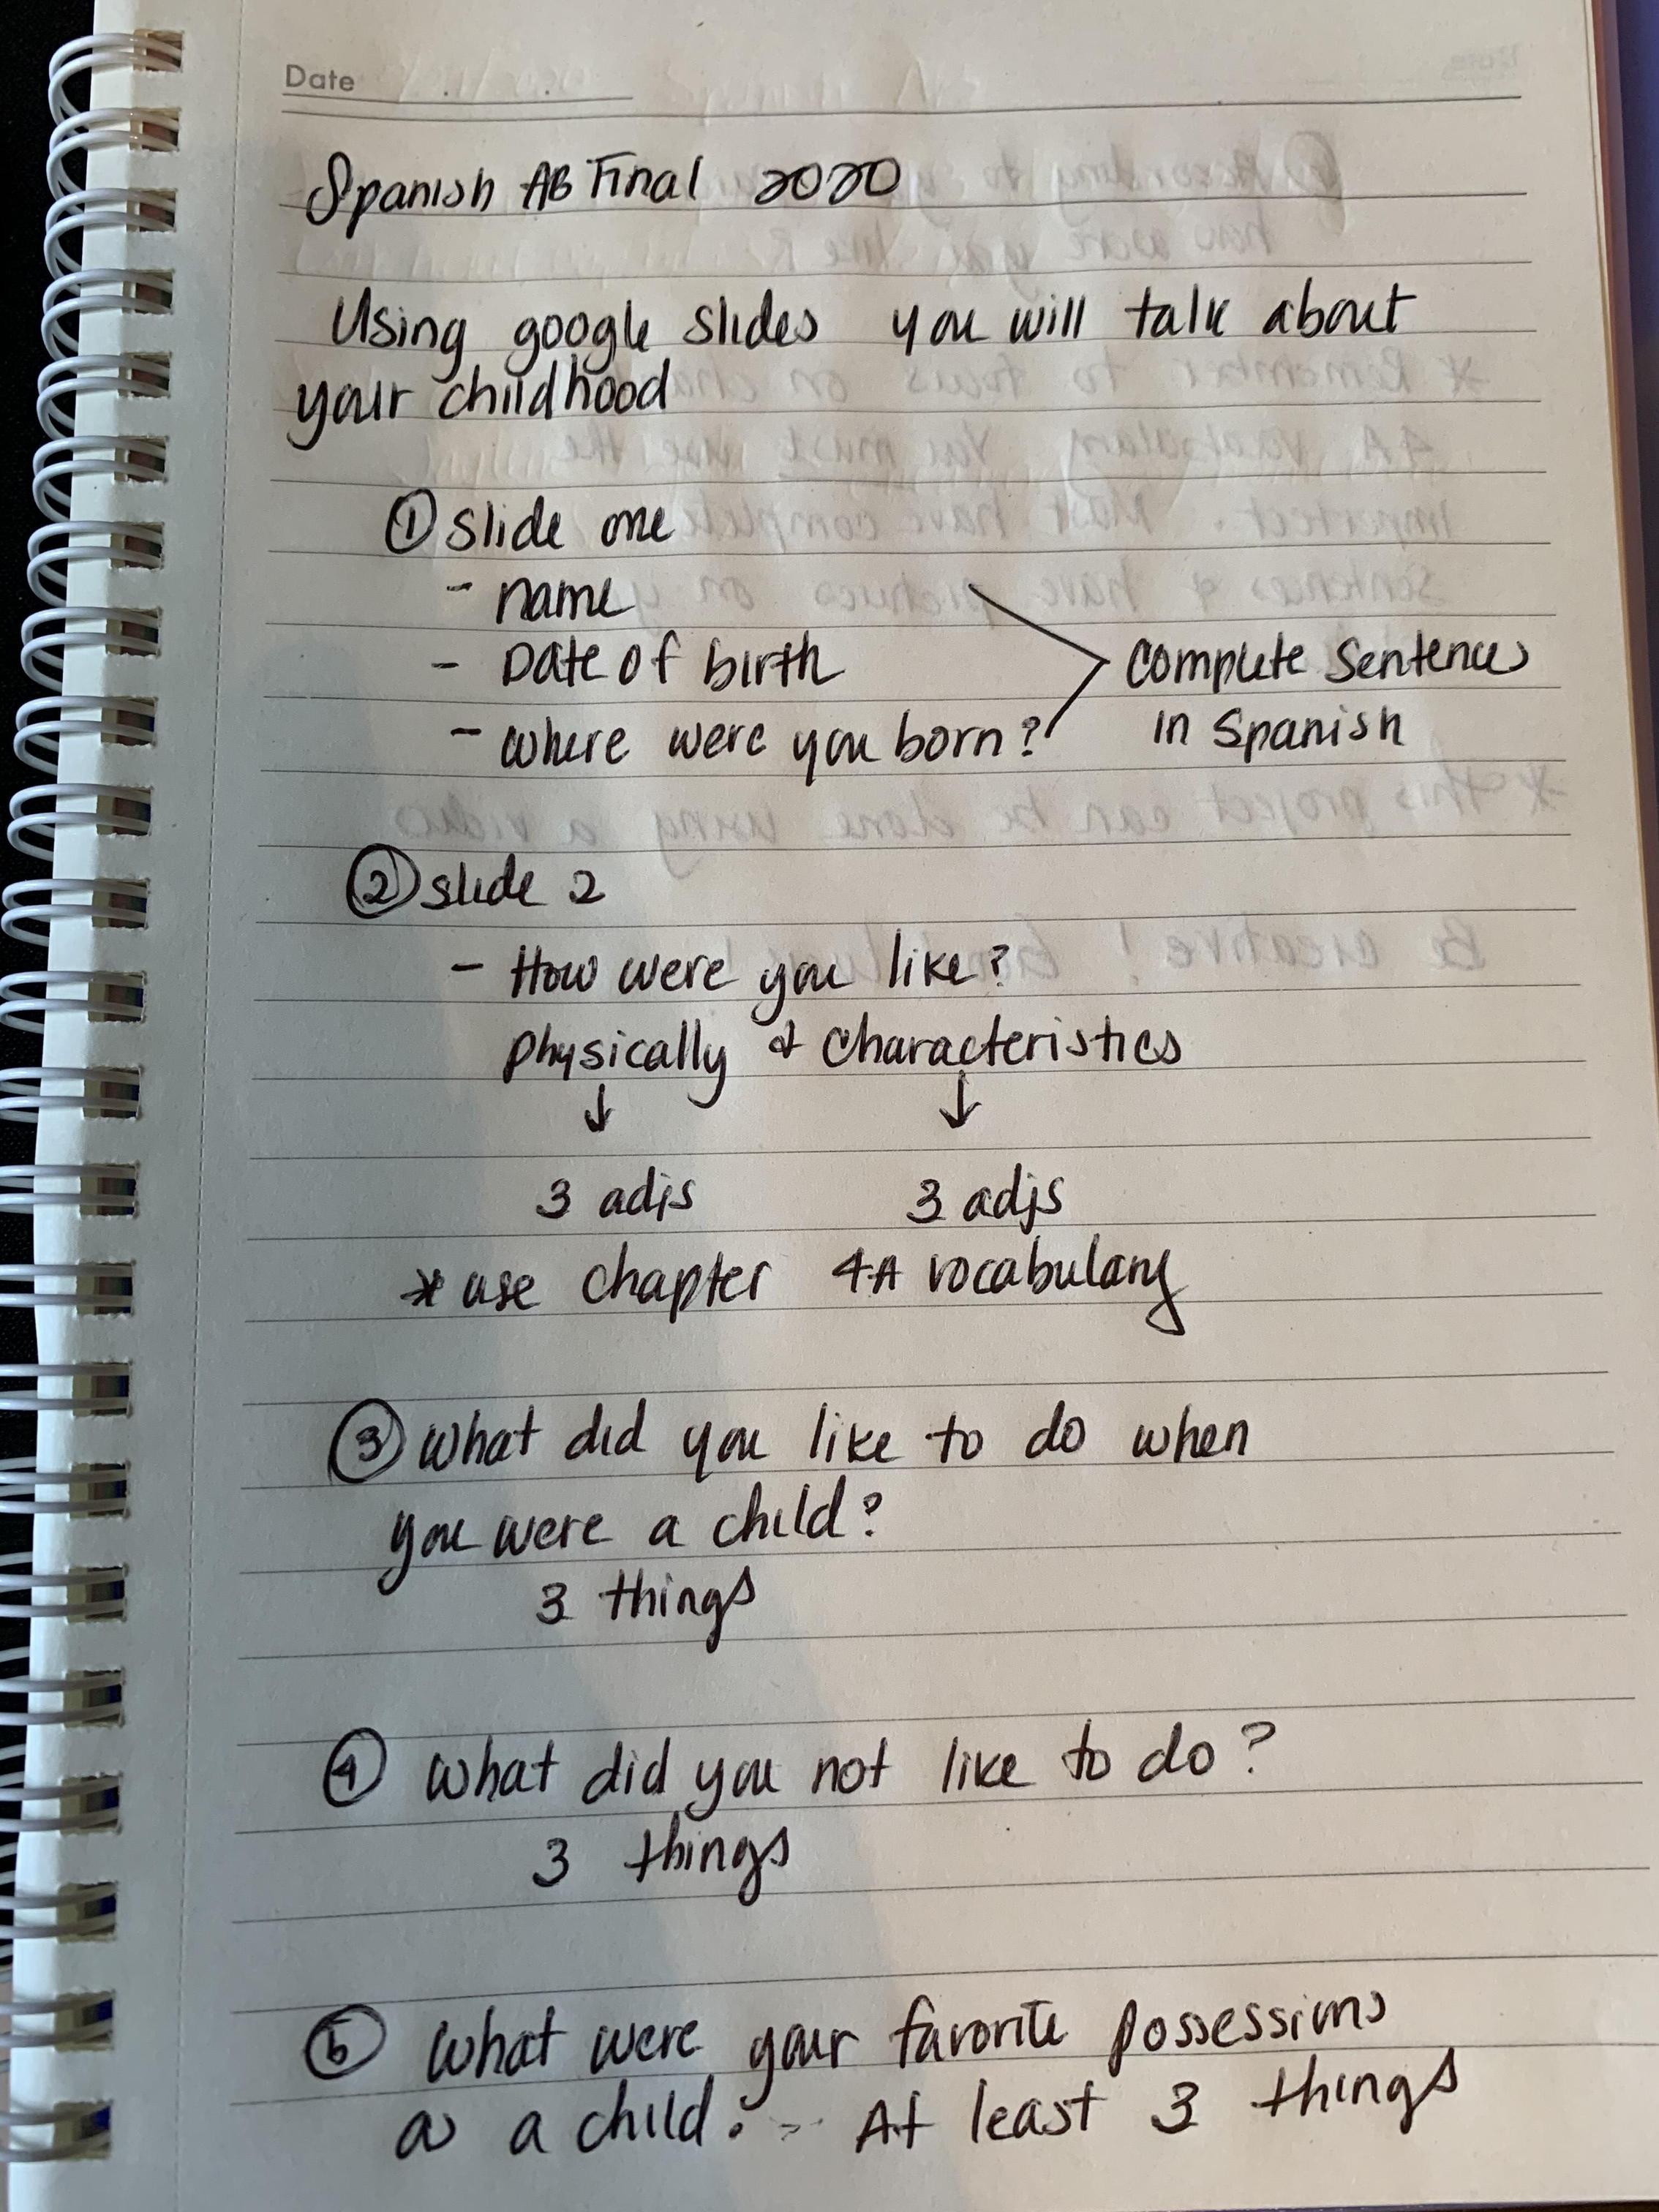 Date
Spanish AB Final 2020
Using google slides you will talk about
your childhood
① slide one
- name
- Date of birth
- where were you born?
complete sentences
in Spanish
② slide 2
- How were you like?
physically & characteristics
↓ ↓
3 adjs 3 adjs
* use chapter 4A vocabulary
③ what did you like to do when
you were a child?
3 things
④ what did you not like to do?
3 things
⑤ what were your favorite possessions
as a child? - At least 3 things